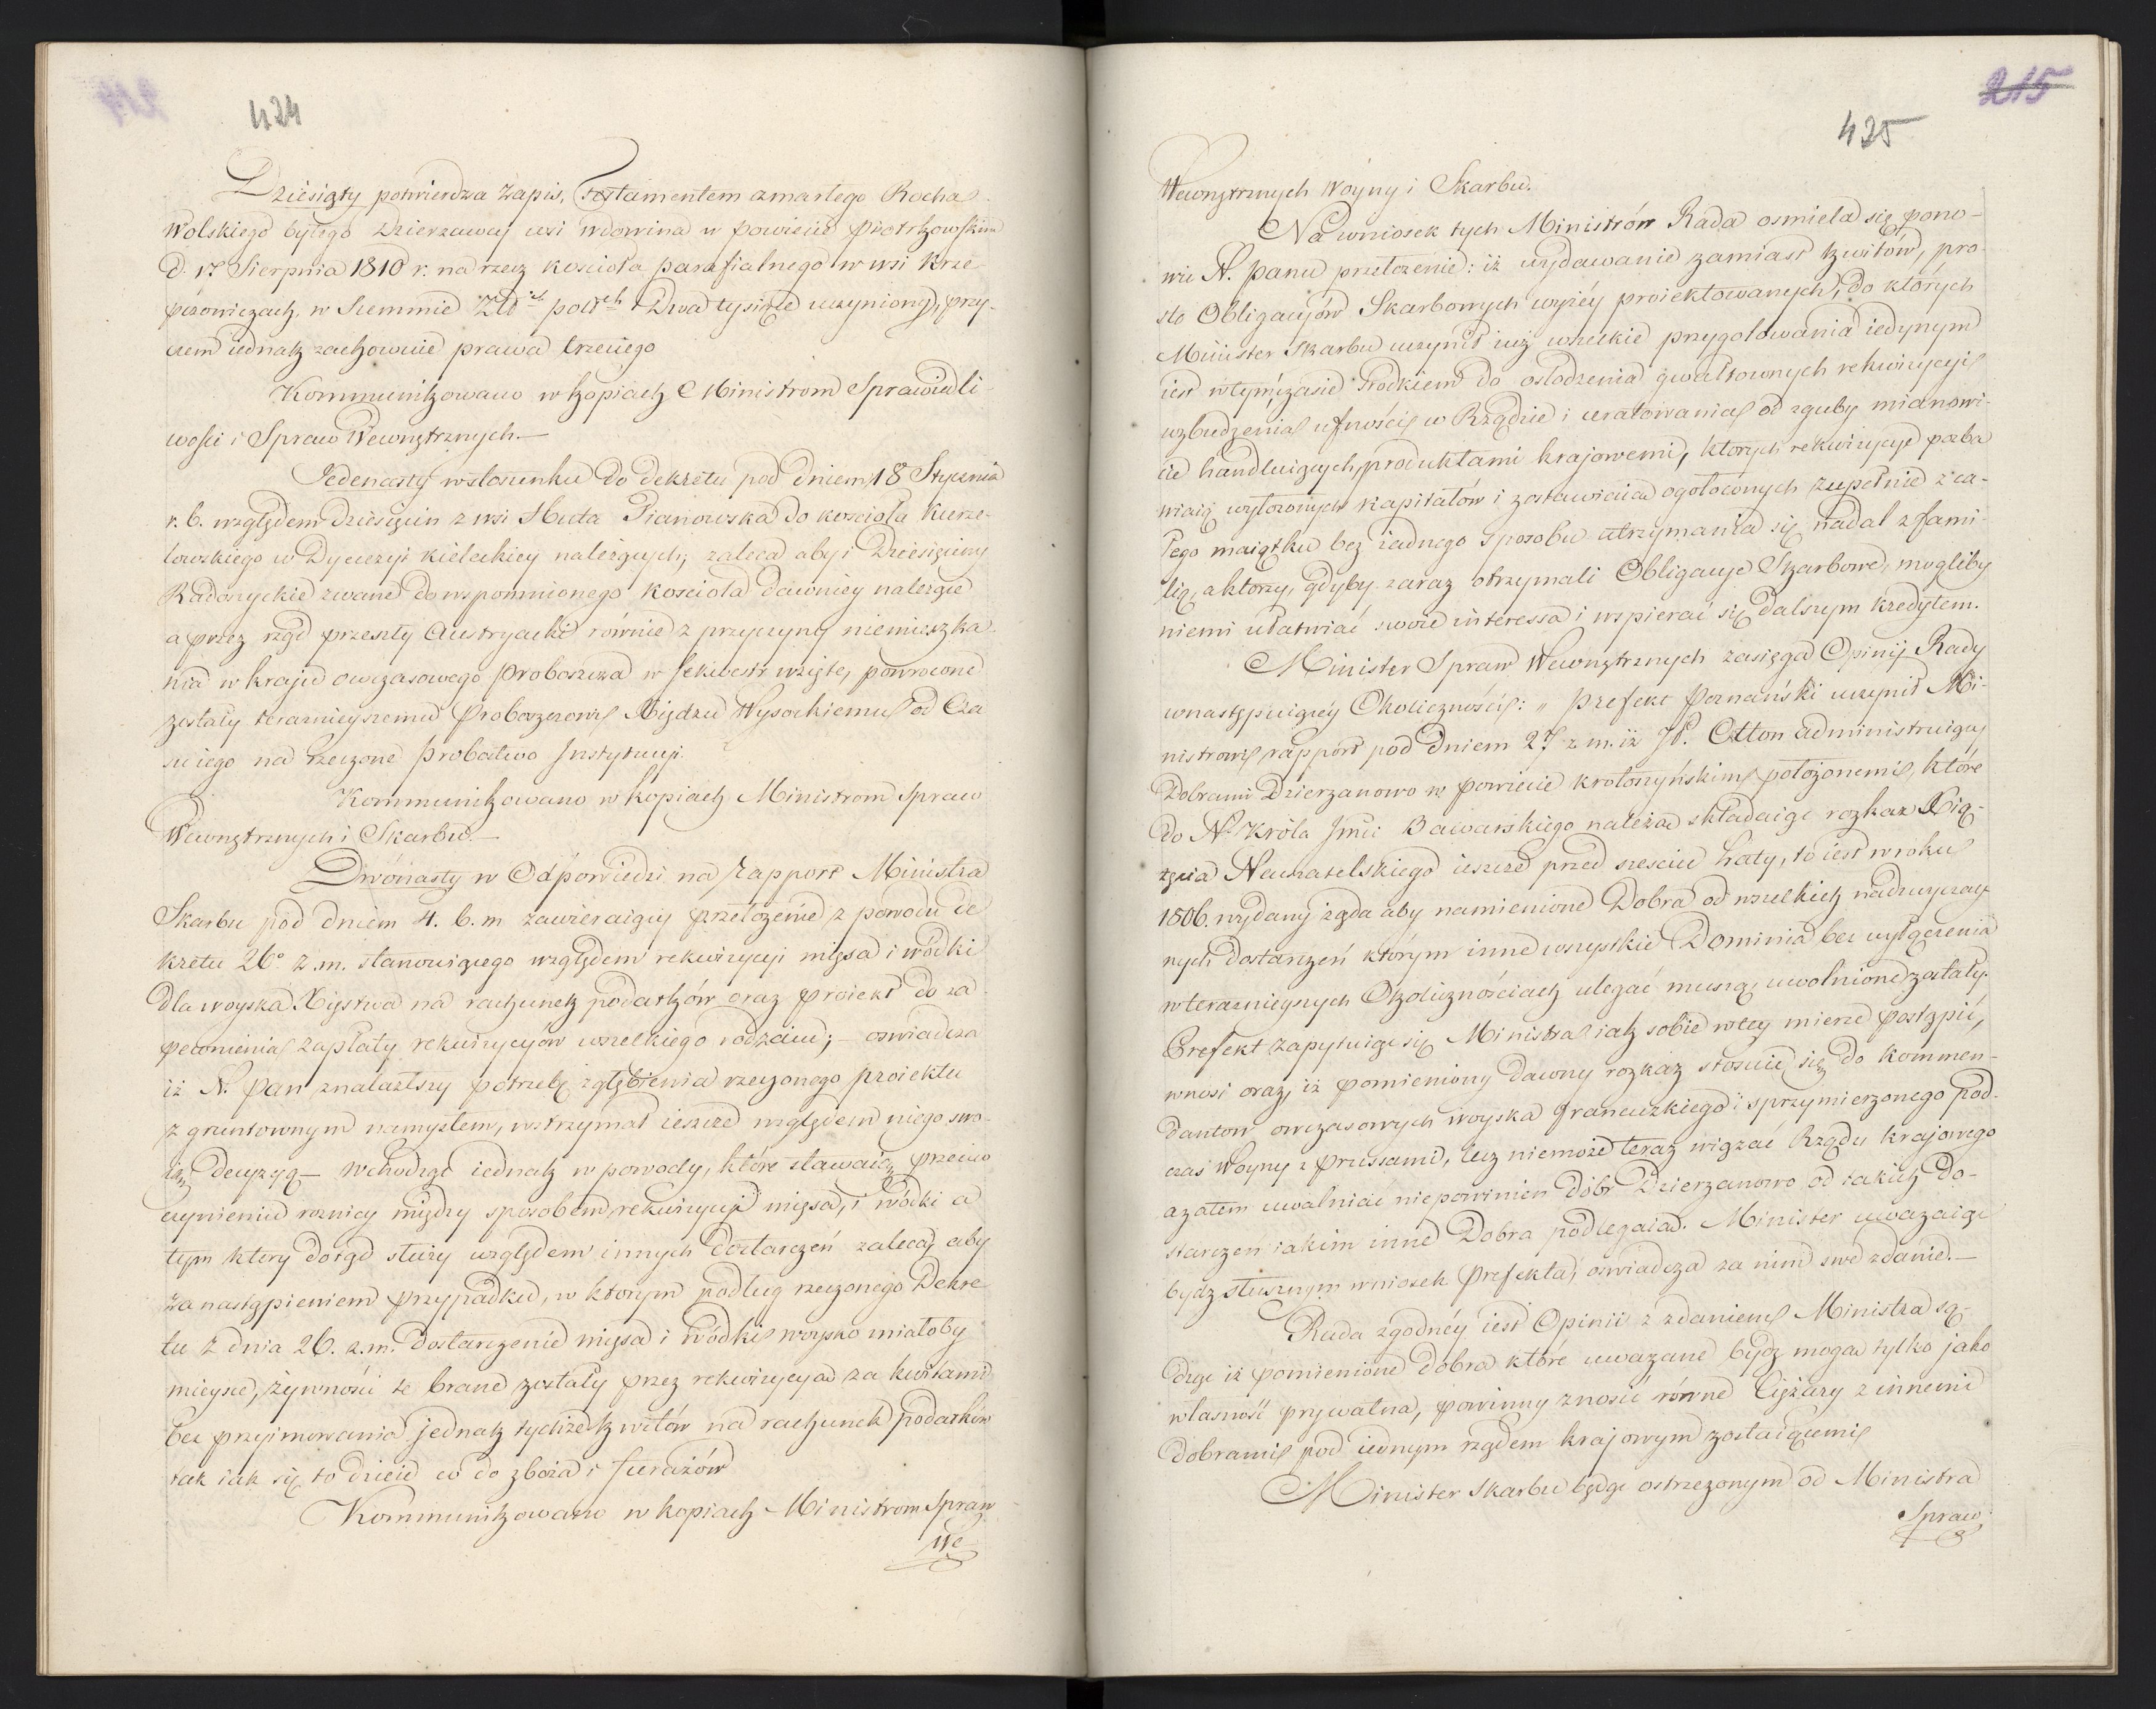 424
Dziesiąty potwierdza zapis, testamentem zmarłego Rocha
Wolskiego byłego Dzierzawcy wsi Wdowina w powiecie Piotrkowskim
d. 17 Sierpnia 1810 r. na rzecz kościoła parafialnego w wsi Krze-
pczowiczach, w Summie Złot. pols. Dwa tysiące uczyniony, przy-
czem iednak zachowuie prawa trzeciego
Kommunikowano w kopiach Ministrom Sprawiedli-
wości i Spraw Wewnętrznych.—
Jedenasty w stosunku do dekretu pod dniem 18 Stycznia
r. b. względem dziesięcin z wsi Huta Pianowska do kościoła Kurze-
lowskiego w Dyecezyi kieleckiey należących; zaleca aby i Dziesięciny
Radoszyckie zwane do wspomnionego kościoła dawniey należące
a przez rząd przeszły Austryacki równie z przyczyny niemieszka-
nia w kraju owczasowego Proboszcza w sekwestr wzięte, powrócone
zostały teraznieyszemu Proboszczowi Xiędzu Wysockiemu od Cza
su iego na rzeczone Probostwo Instytucyi.
Kommunikowano w kopiach Ministrom Spraw
Wewnętrznych i Skarbu.—
Dwónasty w Odpowiedzi na Rapport Ministra
Skarbu pod dniem 4. b. m zawieraiący przełożenie z powodu de
kretu 26o z. m. stanowiącego względem rekwizycyi mięsa i wódki
dla woyska Xięstwa na rachunek podatków oraz proiekt do za-
pewnienia zapłaty rekwizycyów wszelkiego rodzaiu; — oswiadcza
iż N. Pan znalazłszy potrzebę zgłębienia rzeczonego proiektu
z gruntownym namysłem, wstrzymał ieszcze względem niego swo-
ią Decyzyą — wchodząc iednak w powody, które stawaią przeciw
czynieniu roznicy między sposobem rekwizycyi mięsa, i wódki a
tym ktory dotąd służy względem innych dostarczeń zaleca, aby
za nastąpieniem przypadku, w ktorym podług rzeczonego Dekre
tu z dnia 26. z. m. dostarczenie mięsa i wódki woysko miałoby
mieysce, żywności te brane zostały przez rekwizycyą za kwitami
bez przyimowania jednak tychże kwitów na rachunek podatków
tak iak się to dzieie co do zboża i furażów
Kommunikowano w kopiach Ministrom Spraw
We
215
425
Wewnętrznych Woyny i Skarbu.
Na wniosek tych Ministrów Rada osmiela się pono-
wić N. Panu przełożenie: iż wydawanie zamiast kwitów, pro-
sto Obligacyów Skarbowych wyżéy proiektowanych, do których
Minister Skarbu uczynił iuż wszelkie przygotowania iedynym
iest w tym czasie srodkiem do osłodzenia gwałtownych rekwizycyi
wzbudzenia ufności w Rządzie i uratowania od zguby mianowi-
cie handluiących produktami krajowemi, ktorych rekwizycye pozba
wiaią wyłożonych kapitałów i zostawieia ogołoconych zupełnie z ca-
łego maiątku bez żadnego sposobu utrzymania się nadal z fami-
lią, a ktorzy, gdyby zaraz otrzymali Obligacye Skarbowe, mogliby
niemi ułatwiać swoie interessa i wspierać się dalszym kredytem.
Minister Spraw Wewnętrznych zasięga Opinij Rady
w następuiącey Okoliczności: „ Prefekt Poznański uczynił Mi-
nistrowi rapport pod dniem 27 z. m. iż JP. Otton administruiący
Dobrami Dzierzanowo w powiecie krotoszyńskim położonemi, które
do N. Króla Jmci Bawarskiego należą składaiąc rozkaz Xią-
zęcia Neuszatelskiego ieszcze przed sześciu laty, to iest w roku
1806. wydany żąda aby namienione Dobra od wszelkich nadzwyczay
nych dostarczeń którym inne wszystkie Dominia bez wyłączenia
w teraznieyszych Okolicznościach ulegać muszą, uwolnione zostały.
Prefekt zapytuiąc się Ministra iak sobie w tey mierze postąpić,
wnosi oraz, iż pomieniony dawny rozkaz stosuie się do kommen-
dantow owczasowych woyska francuzkiego i sprzymierzonego pod-
czas Woyny z Prussami, lecz niemoże teraz wiązać Rządu krajowego
a zatem uwalniać niepowinien dóbr Dzierzanowo od takich do-
starczeń iakim inne Dobra podlegaią. Minister uwazaiąc
bydz słusznym wniosek Prefekta, oświadcza za nim swe zdanie.—
Rada zgodnéy iest Opinii z zdaniem Ministra są-
dząc iż pomienione dobra które uwazane bydz mogą tylko jako
własność prywatna, powinny znosić równe Ciężary z innemi
dobrami pod iednym rządem krajowym zostaiącemi
Minister Skarbu będąc ostrzezonym od Ministra
Spraw